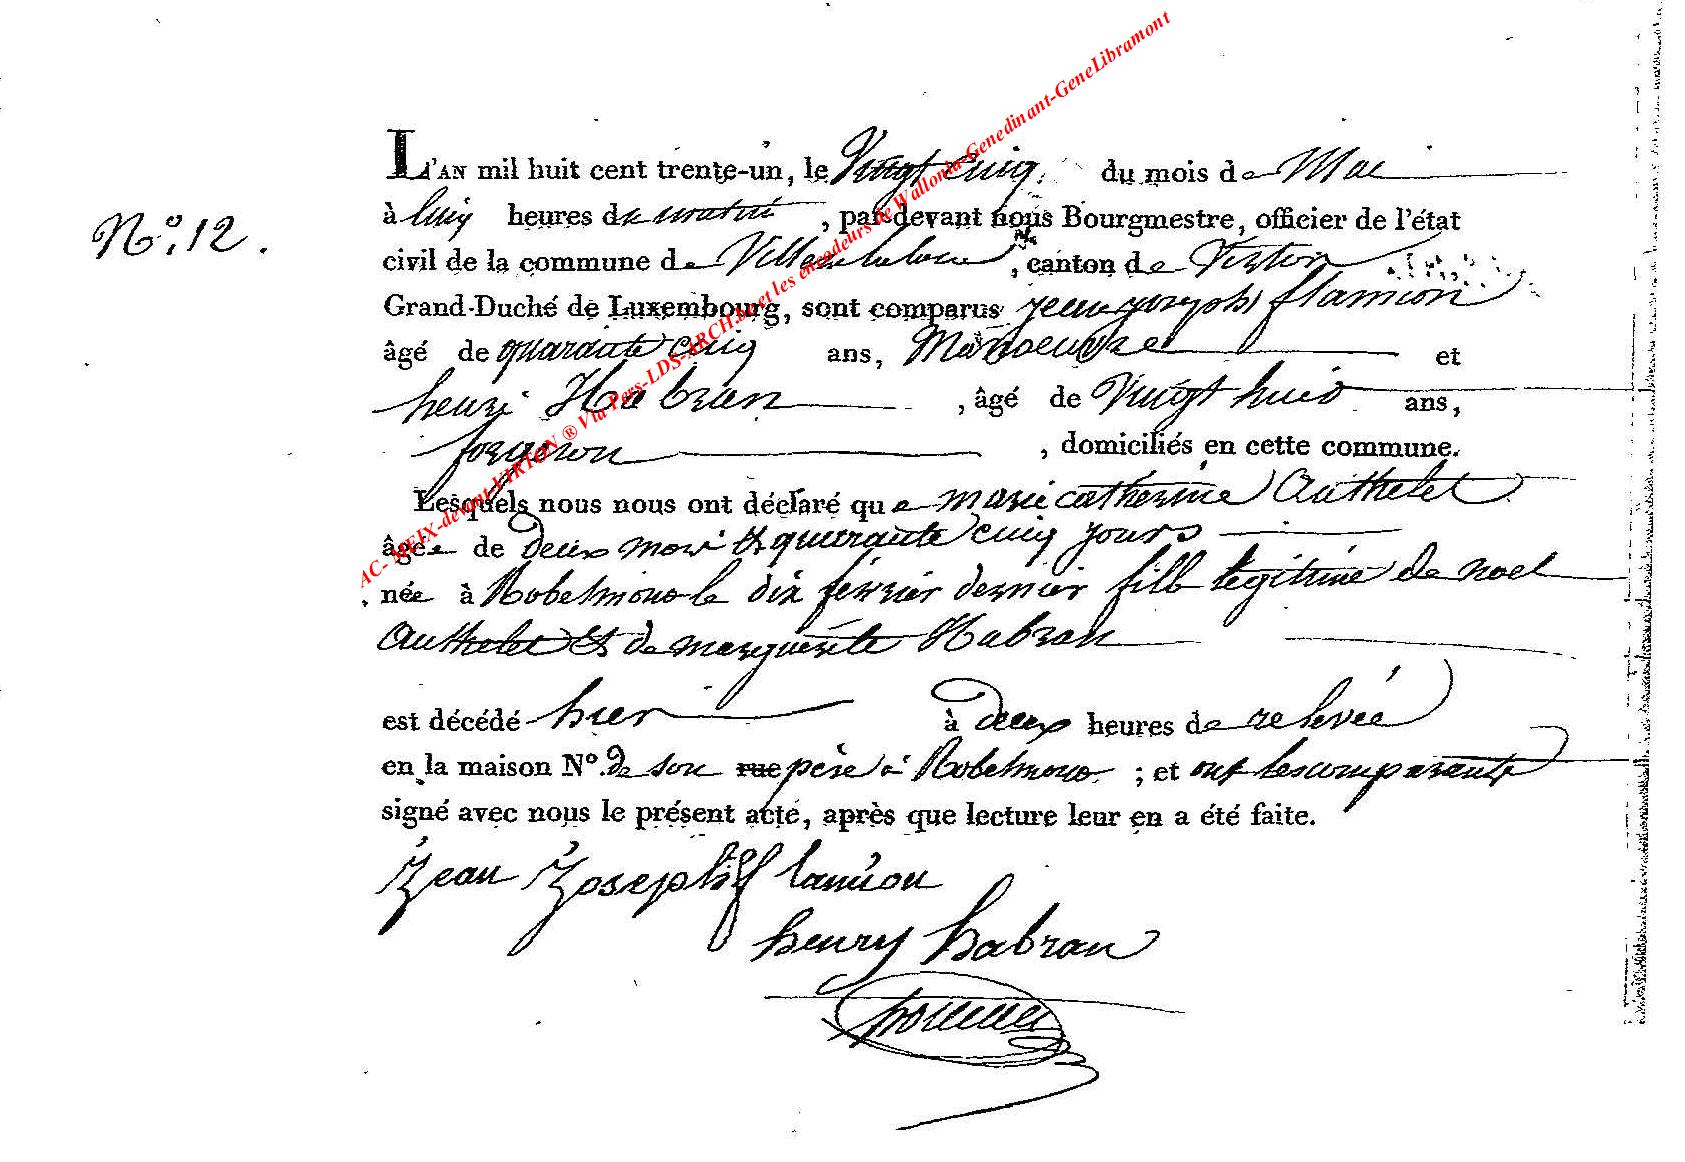 AC- MEIX-devant-VIRTON ® Via Pers-LDS-ARCH.be et les encodeurs de Wallonia-Genedinant-GeneLibramont
N.º 12.
L'AN mil huit cent trente-un, le Vingt cinq du mois de Mai
à cinq heures du matin, par devant nous Bourgmestre, officier de l'état
civil de la commune de Villers la loue, canton de Virton
Grand-Duché de Luxembourg, sont comparus jean joseph flamion
âgé de quarante cinq ans, Manoeuvre et
henri Habran, âgé de Vingt huit ans,
forgeron, domiciliés en cette commune.
Lesquels nous nous ont déclaré que marie catherine Authelet
âgée de deux mois & quarante cinq jours
née à Robelmont le dix février dernier fille légitime de noel
Authelet & de marguerite Habran
est décédé hier à deux heures de relevée
en la maison Nº. de son rue père à Robelmont ; et ont les comparants
signé avec nous le présent acte, après que lecture leur en a été faite.
Jean Joseph flamion
henry habran